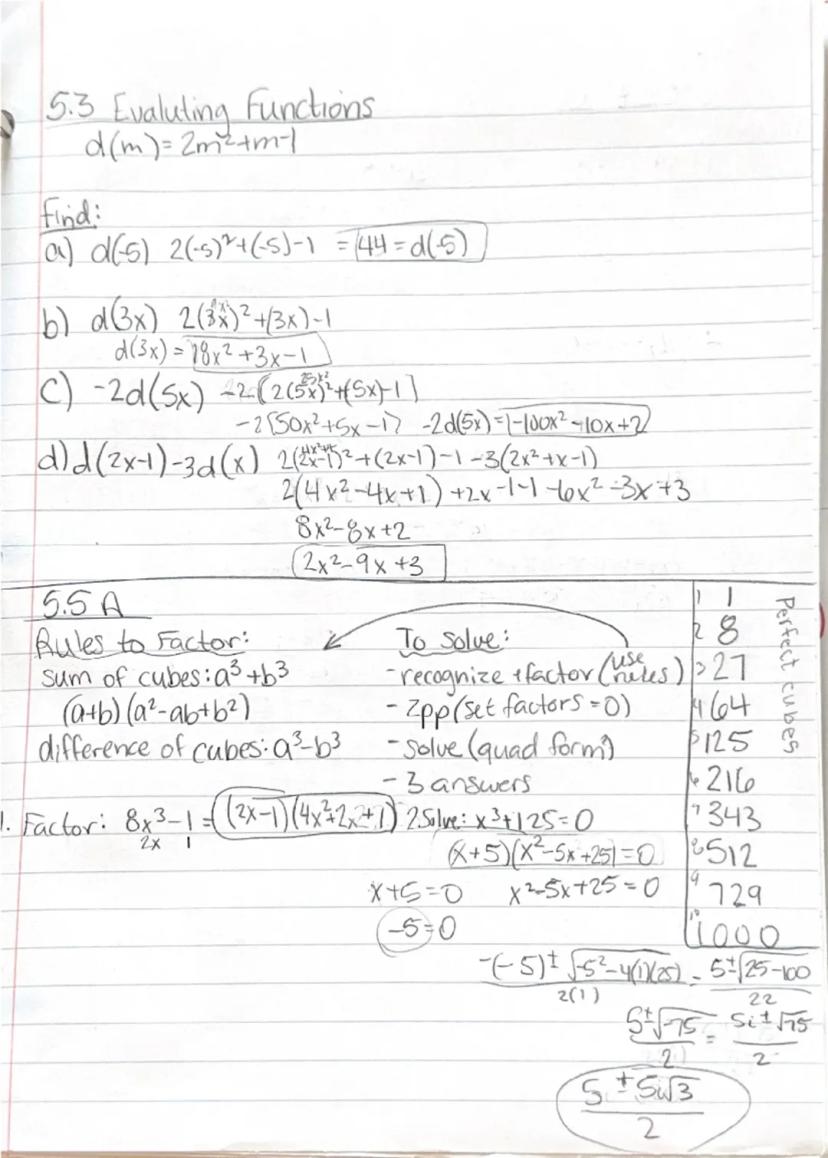 5.3 Evaluting Functions
d(m) = 2m²+m-1
Find:
a) d(-5) 2(-5)²+(-5)-1 = 44 = d(-5)
b) d(3x) 2(3x)²+(3x)-1
d(3x) = 18x²+3x-1
c) -2d(5x) -2[2(5x)²+(5x)-1]
-2[50x²+5x-1] -2d(5x)=-100x²-10x+2
d) d(2x-1)-3d(x) 2(2x-1)²+(2x-1)-1-3(2x²+x-1)
2(4x²-4x+1)+2x-1-1-6x²-3x+3
8x²-8x+2
2x²-9x+3
5.5 A
Rules to Factor:
sum of cubes: a³+b³
(a+b)(a²-ab+b²)
difference of cubes: a³-b³
To solve:
-recognize +factor (use rules)
-zpp (set factors=0)
-solve (quad form)
-3 answers
Perfect cubes
1 1
2 8
3 27
4 64
5 125
6 216
7 343
8 512
9 729
10 1000
1. Factor: 8x³-1 = (2x-1)(4x²+2x+1)
2x 1
2 Solve: x³+125=0
(x+5)(x²-5x+25)=0
x+5=0 x²-5x+25=0
-5=0
-(-5)±√-5²-4(1)(25) = 5±√25-100
2(1) 22
5±√-75 = 5i±√75
2 2
5±5i√3
2